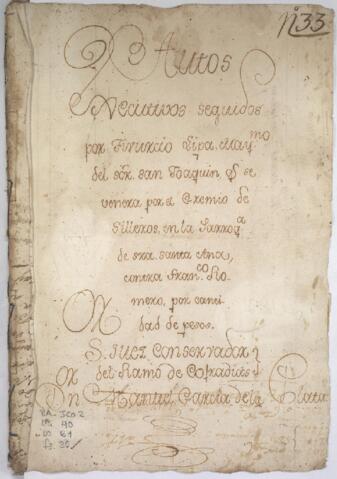 nº 33
Autos
Executivos seguidos
por Tiburcio Lipa, May.mo
del Sor. San Joaquin, q. se
venera por el Gremio de
Silleros, en la Parroq.a
de sra. santa Ana,
contra Fran.co Ro-
mero, por canti-
dad de pesos.
S. Juez Conservador
del Ramo de Cofradias
Dn Manuel Garcia de la Plata